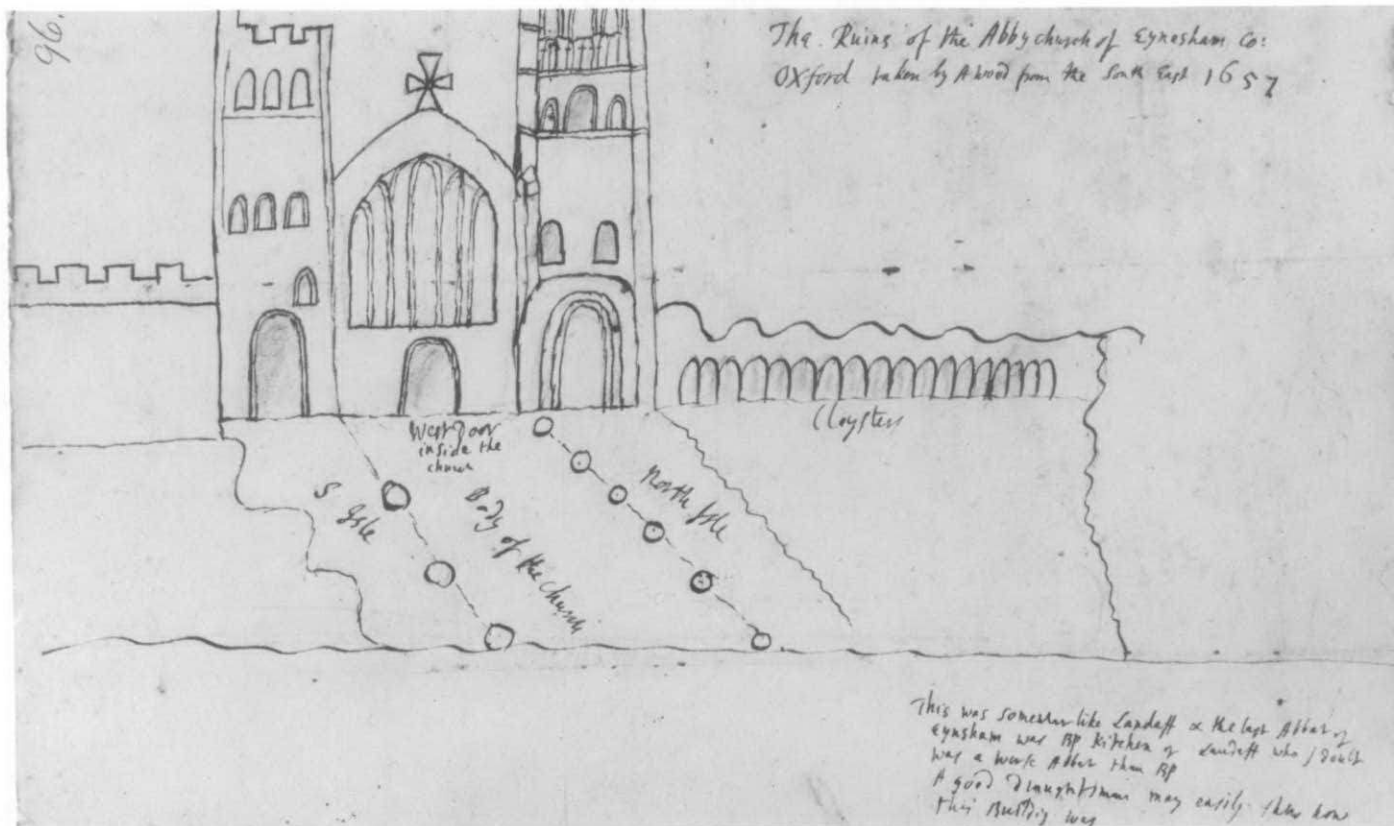 96.
The Ruins of the Abbychurch of Eynesham Co:
Oxford taken by A wood from the South East 1657
Cloysters
West Door
inside the
church
S Isle
Body of the Church
North Isle
This was somewhat like Landaff & the last Abbat of
Eynsham was Bp Kitchen of Landaff who I doubt
was a Abbat than Bp
A good Draughtsman may easily shew how
this Buildig was